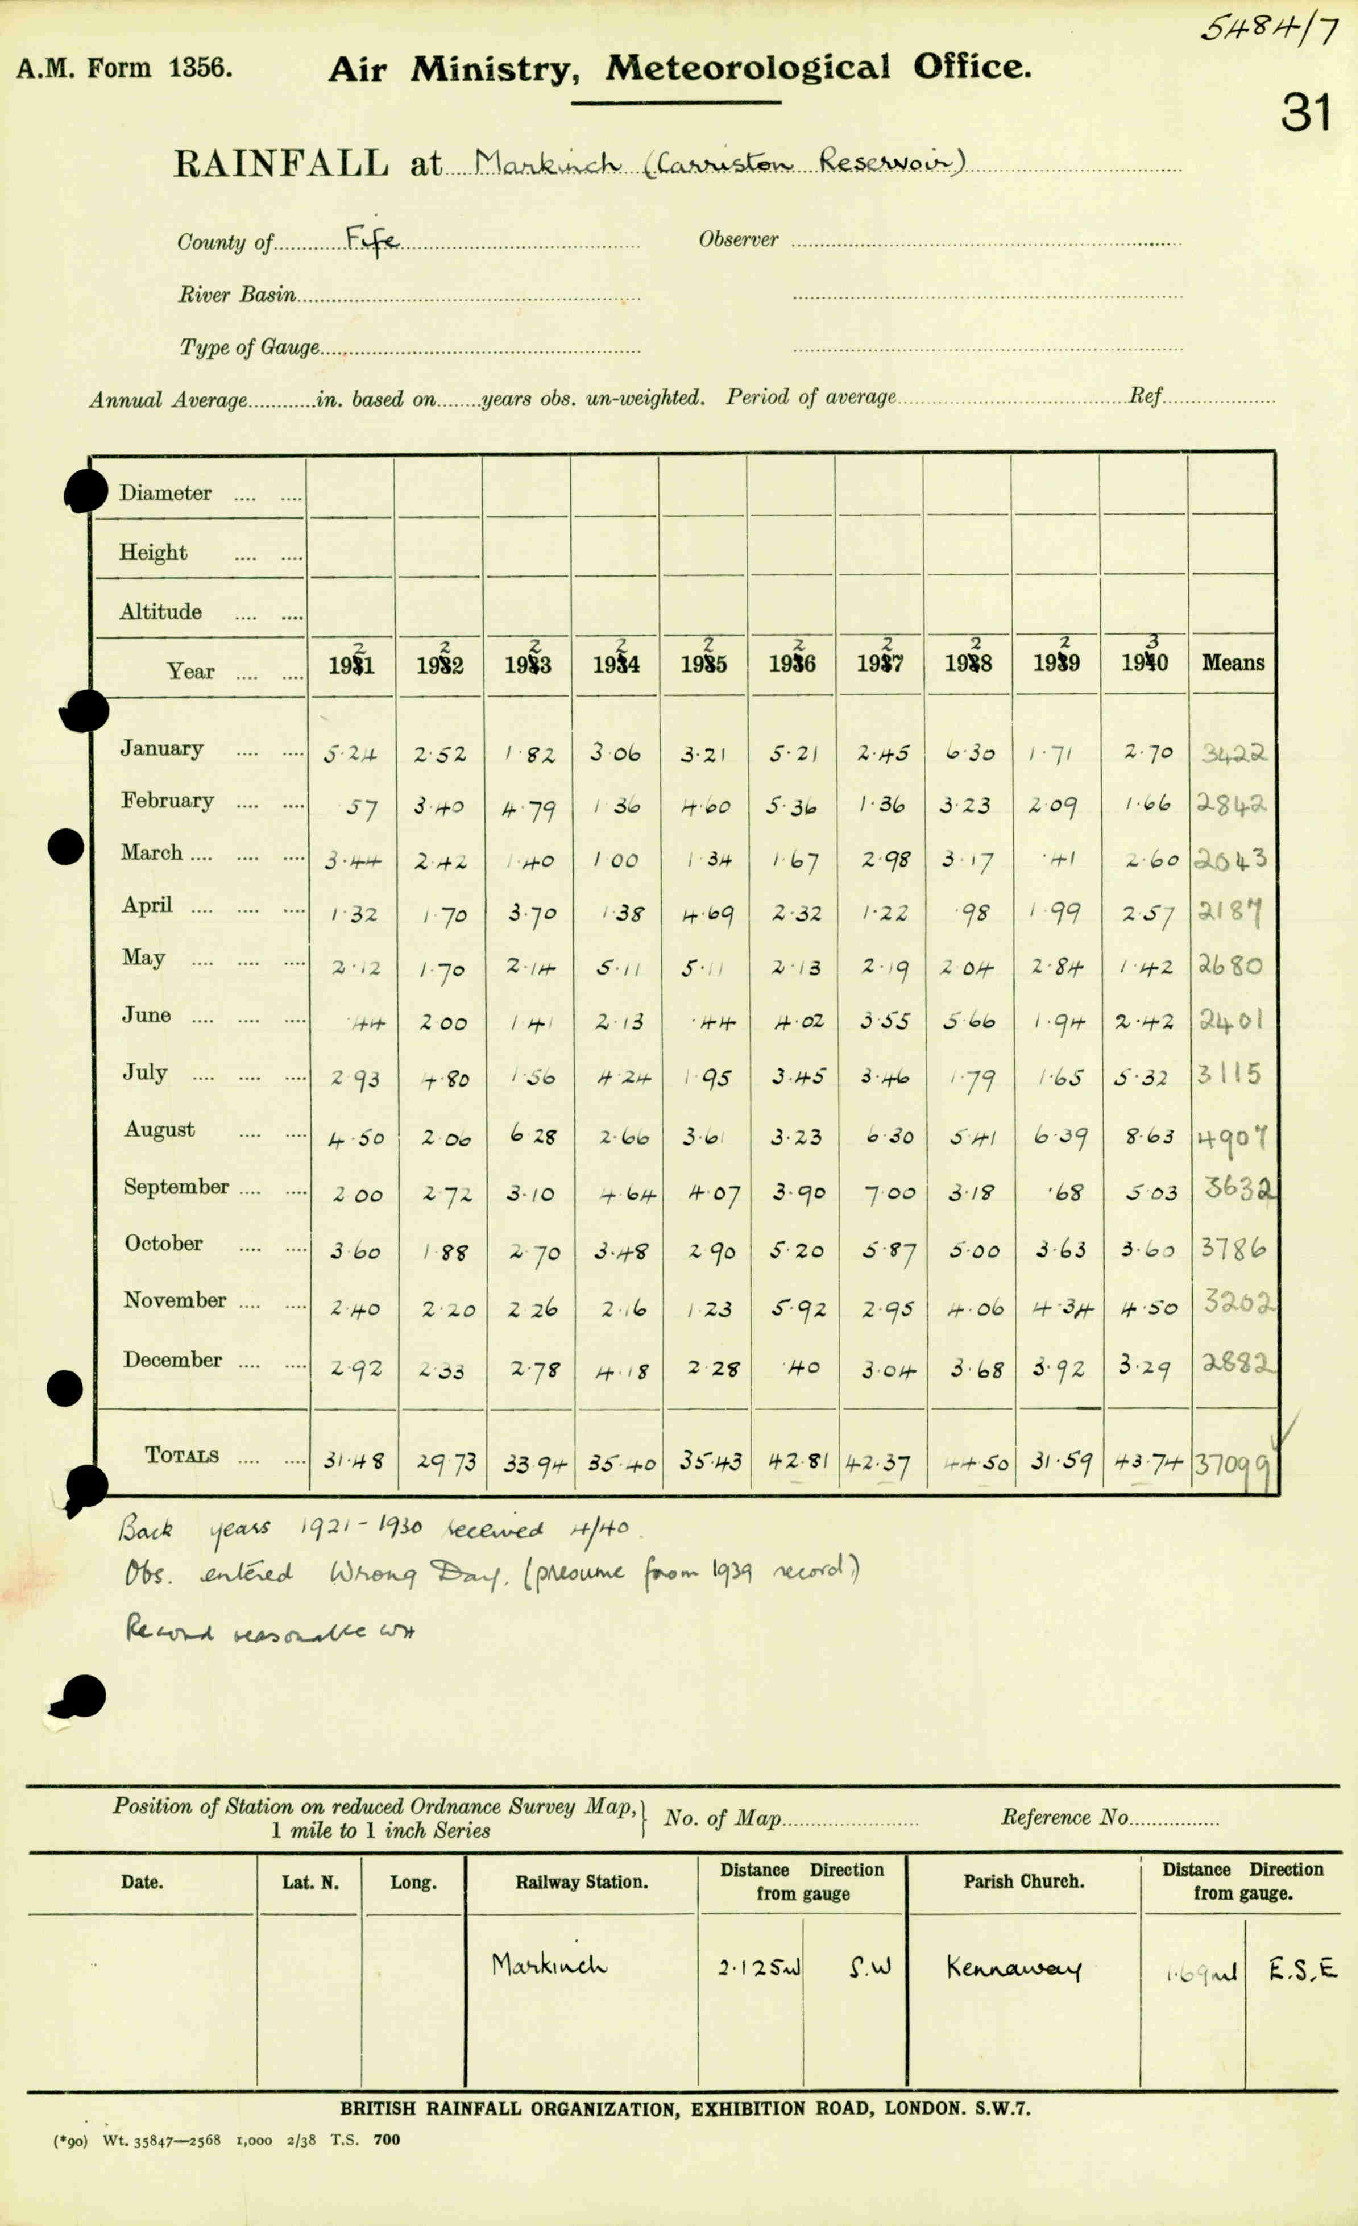 5484/7
A.M. Form 1356. Air Ministry, Meteorological Office.
31
RAINFALL at Markinch (Carriston Reservoir)
County of Fife Observer
River Basin
Type of Gauge
Annual Average in. based on years obs. un-weighted. Period of average Ref.
Diameter
Height
Altitude
2 2 2 2 2 2 2 2 2 3
Year 1931 1932 1933 1934 1935 1936 1937 1938 1939 1940 Means
January 5.24 2.52 1.82 3.06 3.21 5.21 2.45 6.30 1.71 2.70 3422
February .57 3.40 4.79 1.36 4.60 5.36 1.36 3.23 2.09 1.66 2842
March 3.44 2.42 1.40 1.00 1.34 1.67 2.98 3.17 .41 2.60 2043
April 1.32 1.70 3.70 1.38 4.69 2.32 1.22 .98 1.99 2.57 2187
May 2.12 1.70 2.14 5.11 5.11 2.13 2.19 2.04 2.84 1.42 2680
June .44 2.00 1.41 2.13 .44 4.02 3.55 5.66 1.94 2.42 2401
July 2.93 4.80 1.56 4.24 1.95 3.45 3.46 1.79 1.65 5.32 3115
August 4.50 2.06 6.28 2.66 3.61 3.23 6.30 5.41 6.39 8.63 4907
September 2.00 2.72 3.10 4.64 4.07 3.90 7.00 3.18 .68 5.03 3632
October 3.60 1.88 2.70 3.48 2.90 5.20 5.87 5.00 3.63 3.60 3786
November 2.40 2.20 2.26 2.16 1.23 5.92 2.95 4.06 4.34 4.50 3202
December 2.92 2.33 2.78 4.18 2.28 .40 3.04 3.68 3.92 3.29 2882
TOTALS 31.48 29.73 33.94 35.40 35.43 42.81 42.37 44.50 31.59 43.74 37099
Back years 1921-1930 received 4/40.
Obs. entered Wrong Day. (presume from 1939 record)
Record reasonable
Position of Station on reduced Ordnance Survey Map, } No. of Map Reference No.
1 mile to 1 inch Series
Date. Lat. N. Long. Railway Station. Distance Direction from gauge Parish Church. Distance Direction from gauge.
Markinch 2.125 S.W Kennaway 1.69ml E.S.E
BRITISH RAINFALL ORGANIZATION, EXHIBITION ROAD, LONDON. S.W.7.
(*90) Wt. 35847—2568 1,000 2/38 T.S. 700